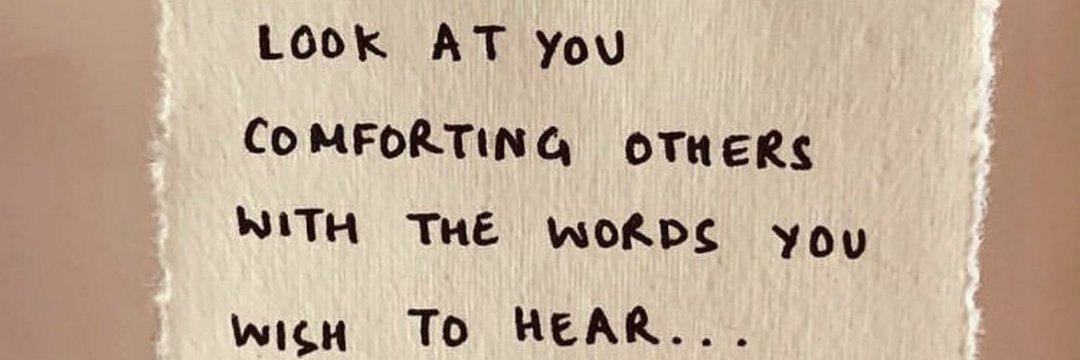 LOOK AT YOU
COMFORTING OTHERS
WITH THE WORDS YOU
WISH TO HEAR...